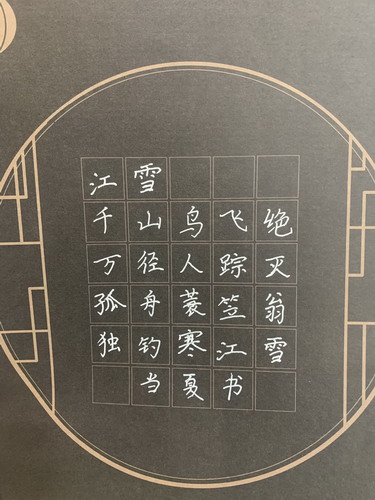 江雪
千山鸟飞绝
万径人踪灭
孤舟蓑笠翁
独钓寒江雪
当夏书